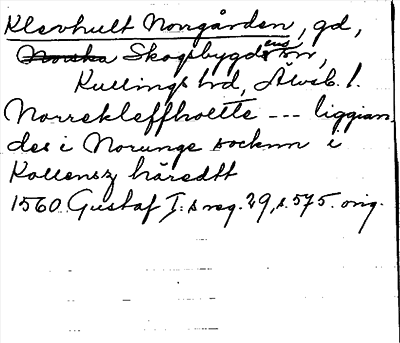 Klevhult Norrgården, gd,
Norska Skogsbygdens sn,
Kullings hd, Älvsb. l.
Norrekleffholtte --- liggian
des i Norunge socknn i
Kollensz häredtt
1560. Gustaf I:s reg. 29, s. 575. orig.